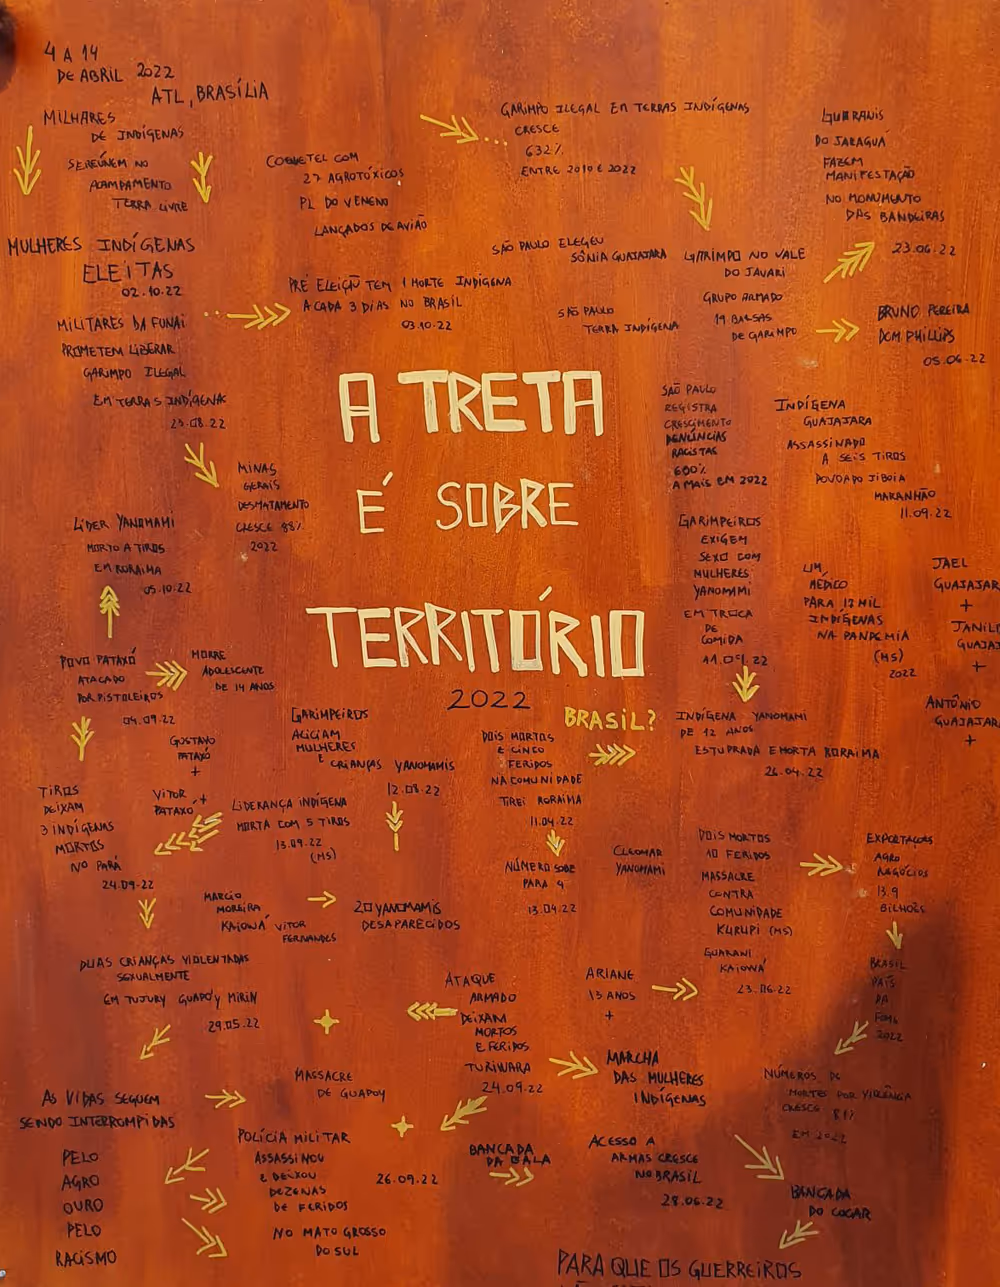 4 A 14
DE ABRIL 2022
ATL, BRASÍLIA
MILHARES
DE INDÍGENAS
SEREÚNEM NO
ACAMPAMENTO
TERRA LIVRE
MULHERES INDÍGENAS
ELEITAS
02.10.22
MILITARES DA FUNAI
PROMETEM LIBERAR
GARIMPO ILEGAL
EM TERRAS INDÍGENAS
23.08.22
COQUETEL COM
27 AGROTÓXICOS
PL DO VENENO
LANÇADOS DE AVIÃO
PRÉ ELEIÇÃO TEM 1 MORTE INDÍGENA
A CADA 3 DIAS NO BRASIL
03.10.22
GARIMPO ILEGAL EM TERRAS INDÍGENAS
CRESCE
632%
ENTRE 2010 E 2022
SÃO PAULO ELEGEU
SÔNIA GUAJAJARA
SÃO PAULO
TERRA INDÍGENA
GUARANIS
DO JARAGUÁ
FAZEM
MANIFESTAÇÃO
NO MONUMENTO
DAS BANDEIRAS
23.06.22
GARIMPO NO VALE
DO JAVARI
GRUPO ARMADO
19 BALSAS
DE GARIMPO
BRUNO PEREIRA
DOM PHILLIPS
05.06.22
A TRETA
É SOBRE
TERRITÓRIO
2022
BRASIL?
MINAS
GERAIS
DESMATAMENTO
CRESCE 88%
2022
LÍDER YANOMAMI
MORTO A TIROS
EM RORAIMA
05.10.22
SÃO PAULO
REGISTRA
CRESCIMENTO
DENÚNCIAS
RACISTAS
680%
A MAIS EM 2022
INDÍGENA
GUAJAJARA
ASSASSINADO
A SEIS TIROS
POVOADO JIBOIA
MARANHÃO
11.09.22
GARIMPEIROS
EXIGEM
SEXO COM
MULHERES
YANOMAMI
EM TROCA
DE
COMIDA
UM
MÉDICO
PARA 13 MIL
INDÍGENAS
NA PANDEMIA
(MS)
2022
JAEL
GUAJAJAR
+
JANIL
GUAJAJ
+
ANTÔNIO
GUAJAJAR
+
POVO PATAXÓ
ATACADO
POR PISTOLEIROS
04.09.22
MORRE
ADOLESCENTE
DE 14 ANOS
GUSTAVO
PATAXÓ
+
VITOR +
PATAXÓ
GARIMPEIROS
ALICIAM
MULHERES
E CRIANÇAS YANOMAMIS
12.08.22
DOIS MORTOS
E CINCO
FERIDOS
NA COMUNIDADE
TIREI RORAIMA
11.04.22
NÚMERO SOBE
PARA 4
13.04.22
INDÍGENA YANOMAMI
DE 12 ANOS
ESTUPRADA E MORTA RORAIMA
26.04.22
TIROS
DEIXAM
3 INDÍGENAS
MORTOS
NO PARÁ
24.09.22
LIDERANÇA INDÍGENA
MORTA COM 5 TIROS
13.09.22
(MS)
MARCIO
MOREIRA
KAIOWÁ VITOR
FERNANDES
20 YANOMAMIS
DESAPARECIDOS
CLEOMAR
YANOMAMI
DOIS MORTOS
10 FERIDOS
MASSACRE
CONTRA
COMUNIDADE
KURUPI (MS)
GUARANI
KAIOWÁ
23.06.22
EXPORTAÇÕES
AGRO
NEGÓCIOS
13.9
BILHÕES
BRASIL
PAÍS
DA
FOME
2022
DUAS CRIANÇAS VIOLENTADAS
SEXUALMENTE
EM TUJURY GUAPOY MIRIN
29.05.22
ATAQUE
ARMADO
DEIXAM
MORTOS
E FERIDOS
TURIWARA
24.09.22
ARIANE
13 ANOS
+
MARCHA
DAS MULHERES
INDÍGENAS
NÚMEROS DE
MORTES POR VIOLÊNCIA
CRESCE
EM 2022
AS VIDAS SEGUEM
SENDO INTERROMPIDAS
PELO
AGRO
OURO
PELO
RACISMO
MASSACRE
DE GUAPOY
POLÍCIA MILITAR
ASSASSINOU
E DEIXOU
DEZENAS
DE FERIDOS
NO MATO GROSSO
DO SUL
26.09.22
BANCADA
DA BALA
ACESSO A
ARMAS CRESCE
NO BRASIL
28.06.22
BANCADA
DO COCAR
PARA QUE OS GUERREIROS